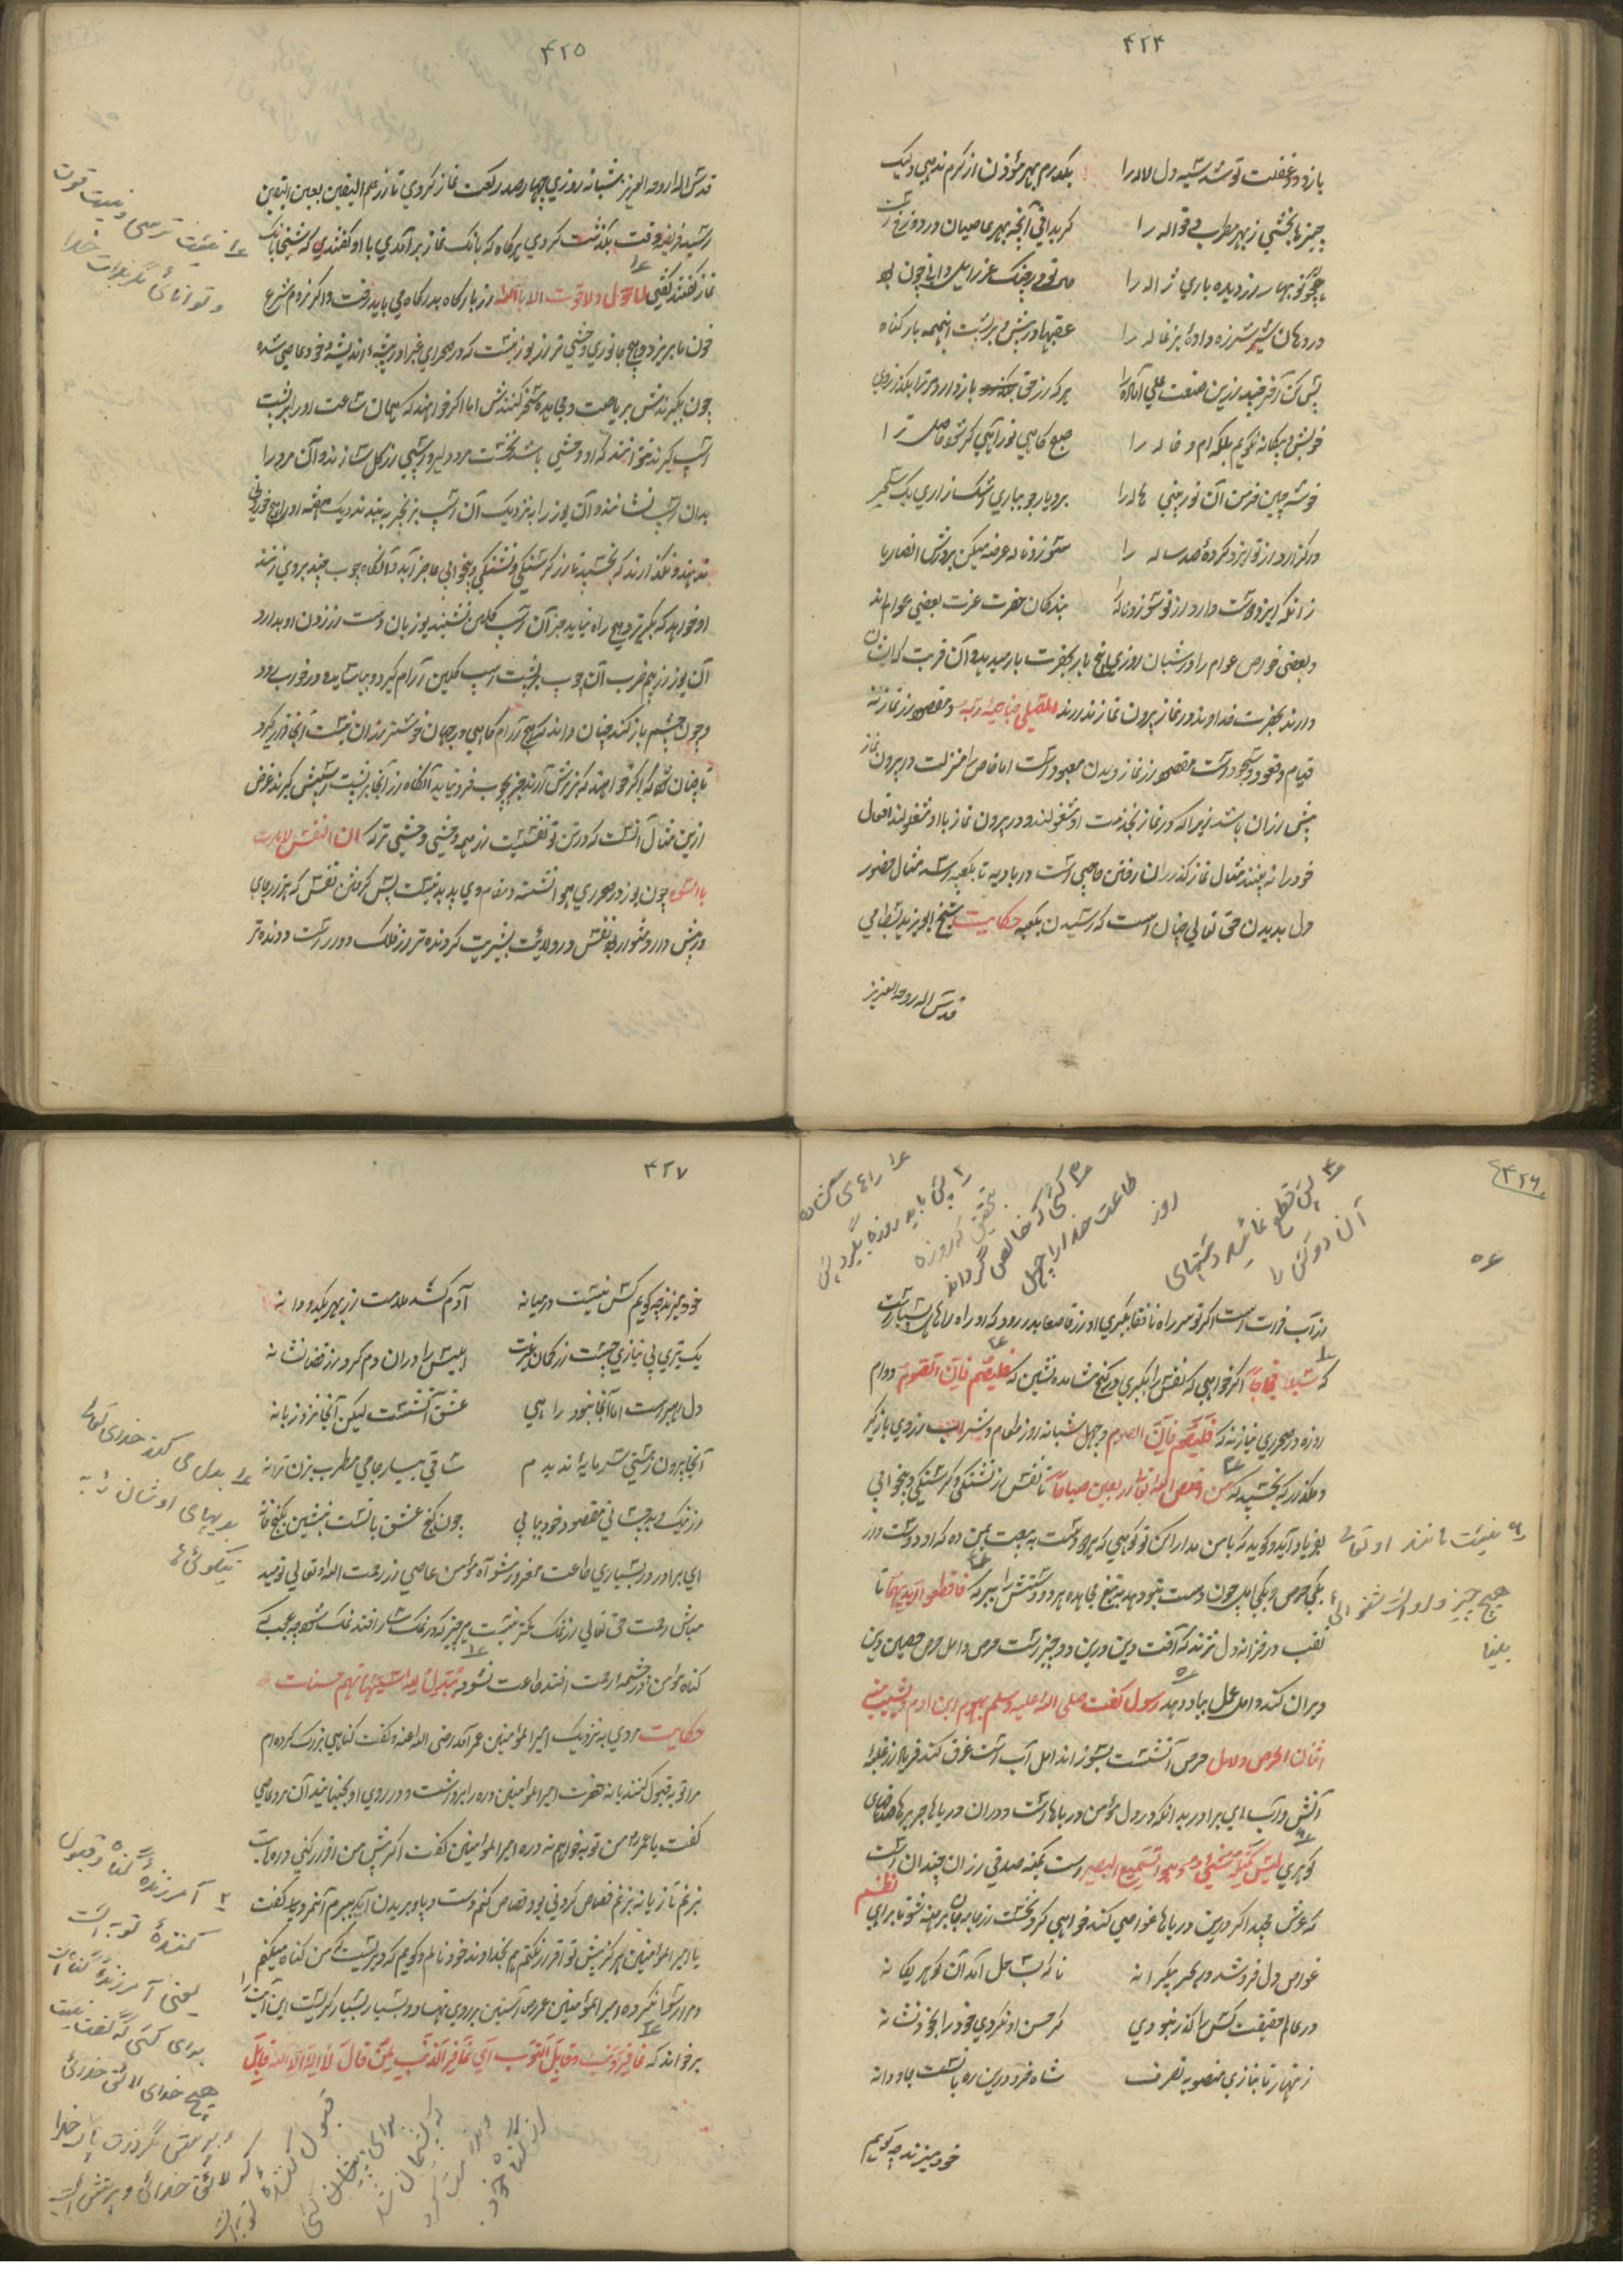 ۴۲۴
بازدود غفلت تو شد سیه دل لاله را
یک درم بهر مؤذن از کرم ندهی ولیک
چیزها بخشی ز بهر مطرب و قواله را
گر بدانی آنچه بهر عاصیان در دوزخ است
همچو ابر نوبهار از دیده باری ژاله را
در دهان شیر شرزه داده بزغاله را
عقبها در پیش و بر پشت اینهمه بار گناه
هر که از حق باز دارد مر ترا بگذر ز وی
خویش و بیگانه نگویم بلکه ام و خاله را
صبح گاهی نور آهی گر شود حاصل ترا
خوشه چین خرمن آن نور بینی هاله را
ور گذارد از تو ایزد کردهٔ صد ساله را
سوز و ناله عرضه میکن بر درش انصاریا
زانکه ایزد دوست دارد از تو سوز و ناله را
بندگان حضرت عزت بعضی عوام اند
و بعضی خواص عوام را در شبان روزی پنج بار بحضرت بار میدهد و آن قربت که ایشان
دارند بحضرت خداوند در نماز بیرون نماز ندارند المصلی یناجی ربه و مقصود از نماز نه
قیام و قعود و سجود است مقصود از نماز دیدن معبود است اما خاص را منزلت در بیرون نماز
بیش از آن باشد زیرا که در نماز بخدمت او مشغولند و در بیرون نماز با او مشغولند افعال
خود را نه بینند مثال نماز گذاران رفتن حاجی است در بادیه تا بکعبه رسد مثال حضور
دل بدیدن حق تعالی چنان است که رسیدن بکعبه حکایت شیخ ابویزید بسطامی
قدس اله روحه العزیز
۴۲۵
قدس اله روحه العزیز بشبانه روزی چهار صد رکعت نماز کردی تا از علم الیقین بعین الیقین
رسید فریضه وقت بگذشت کردی هرگاه که بانک نماز برآمدی با او گفتندی که شیخا بانک
نماز گفتند گفتی لا حول ولا قوت الا بالله از بارگاه بدرگاه می باید رفت و اگر نروم شرع
خون ما بریزد و هیچ جانوری وحشی تر از یوز نیست که در صحرای
چون بگیرندش بریاضت و مجاهده مسخر کنندش اما اگر خواهند که یکساعت او را بر پشت
اسپ گیرند نتوانند که او وحشی باشد نخست مرد دلیر و اسپی از گل سازند و آن مرد را
بدان اسپ نشانند و آن یوز را بنزدیک آن اسپ بزنجیر به بندند و یک هفته او را هیچ خوردنی
ندهند و نگذارند که بخسپد تا از گرسنگی و تشنگی و بیخوابی عاجز آید و آنگاه چوب چند بروی زنند
او خواهد که بگریزد هیچ راه نیابد جز آن اسپ گلین نشیند یوزبان دست از زدن او بدارد
آن یوز از بیم ضرب آن چوب بر پشت اسپ گلین آرام گیرد و بیاساید و در خواب رود
و چون چشم باز کند چنان داند که هیچ آرام گاهی در جهان خوشتر از آن نیست آنجا قرار گیرد
تا چنان شود که اگر خواهند که بزیرش آرند جز بچوب فرو نیاید آنگاه از آنجا بر پشت اسپش گیرند غرض
ازین مثال آنست که در تن تو نفسیست از همه وحشی وحشی تر که ان النفس لامارت
بالسوء چون یوز در صحرای هوا نشسته و مقام وی پدید نیست پس گرفتن نفس که هزار جای
در پیش دارد دشوار بود نفس در ولایت بشریت گردنده تر از فلک دوار است و دونده تر
ع۱ نیست ترسی و نیست قوت
و توانائی مگر بذات خدا
۴۲۶
ع۱ راه های کشاده
ع۲ پس باید روزه بگیرد پس
بتحقیق که روزه
ع۳ کسی که خالص گرداند
طاعت خدا را چهل
روز
ع۴ پس قطع نمائید دستهای
آن دو کس را
ع۵
از آب فرات است اگر تو سر راه نافقا بگیری او از قاصعا بدر رود که او راه راهای بسیار است
که سبلا فجاجا اگر خواهی که نفس را بگیری در کنج مشاهده نشین که فلیصم فان الصوم دوام
روزه در صحرای نیاز نه که فلیصم فان الصوم و چهل شبانه روز طعام و شراب از وی بازگیر
و مگذار که بخسپد که من اخلص لله تعالی اربعین صباحا تا نفس از تشنگی و گرسنگی و بیخوابی
بفریاد آید و گوید که با من مدارا کن تو گویی که هر دو دست به بیعت بمن ده که او دو دست دارد
یکی حرص و یکی امل چون دست بتو دهد به تیغ مجاهده هر دو دستش را ببر که فاقطعوا ایدیهما تا
نقب در خزانه دل نزند که آفت دین درین دو چیز است حرص و امل حرص حصین دین
ویران کند و امل عمل بباد دهد رسول گفت صلی الله علیه وسلم یهرم ابن ادم و یشیب منه
اثنان الحرص والامل حرص آتشست بسوزاند امل آب است غرق کند فریاد از غلبه
آتش و آب ای برادر بدانکه در دل مؤمن دریاها است و در آن دریاها جوهرها
گوهری لیس کمثله شیئ و هو السمیع البصیر است بکعبه صدقی از آن چندان است
که عرش مجید اگر درین دریاها غواصی کند خواهی کرد نخست از جامه جان برهنه شو تا برایی
نظم
غواص دل فرو شد در بحر بیکرانه
تا که بساحل آمد آن گوهر یگانه
در عالم حقیقت کس را گذر نبودی
گر حسن او نکردی خود را بخود نشانه
زنهار تا نبازی منصوبه تصرف
شاه خرد درین ره باتست جاودانه
خود میزند چه گویم
ع۶ نیست مانند او تعالی
هیچ چیز و او است شنوائی
بینا
۴۲۷
خود میزند چه گویم کس نیست در میانه
آدم کشد ملامت از بهر یک دو دانه
یک تیری بی نیازی جست از کمان عزت
ابلیس را در آن دم کرد از قضا نشانه
دل رهبر است اما آنجا نبود راهی
عشق آتشست لیکن آنجا نزد زبانه
آنجا برون ز هستی سرمایه ندیدم
ساقی بیار جامی مطرب بزن ترانه
از نیک و بد چه جستی مقصود خود بیابی
چون گنج عشق باتست بنشین بکنج خانه
ای برادر در بسیاری طاعت مغرور مشو آه مؤمن عاصی از رحمت الله تعالی نومید
مباش رحمت حق تعالی از نمک کمتر نیست هر چیز که در نمکسار افتد نمک شود چه عجب که
گناه مؤمن در چشمه رحمت افتد طاعت نشود یبدل الله سیئاتهم حسنات
حکایت مردی به نزدیک امیرالمؤمنین عمر آمد رضی الله عنه و گفت گناهی بزرگ کرده ام
مرا توبه قبول کنند یا نه حضرت امیرالمومنین دره را برداشت و در روی او بجنبانید آن مرد عاصی
گفت یا عمر من توبه خواهم نه دره امیرالمومنین گفت اگر پیش من اقرار کنی دره است
بزغم تازیانه بزغم قصاص کردنی بود قصاص کنم دست و پا و بریدن آید ببرم آنمرد گفت
یا امیرالمومنین هرگز پیش تو اقرار نکنم هم بخداوند خود نالم و گویم که دیریست که من گناه میکنم
و مرا رسوا نکرد امیرالمؤمنین عمر آستین بر روی نهاد و بسیار بسیار گریست این آیت را
برخواند که غافر الذنب و قابل التوب ای غافر الذنب لمن قال لا اله الا الله قابل
ع۱ بدل می کند خدای تعالی
بدیهای اوشان را به
نیکوئی ها
ع۲ آمرزندهٔ گناه و قبول
کنندهٔ توبه است
یعنی آمرزندهٔ گناه است
برای کسی که گفت نیست
هیچ خدای لائق خدائی
و پرستش مگر ذات پاک خدا
که لائق خدائی و پرستش است
قبول کننده توبه است
برای چنان کسی
که پشیمان شد
از گناه خود